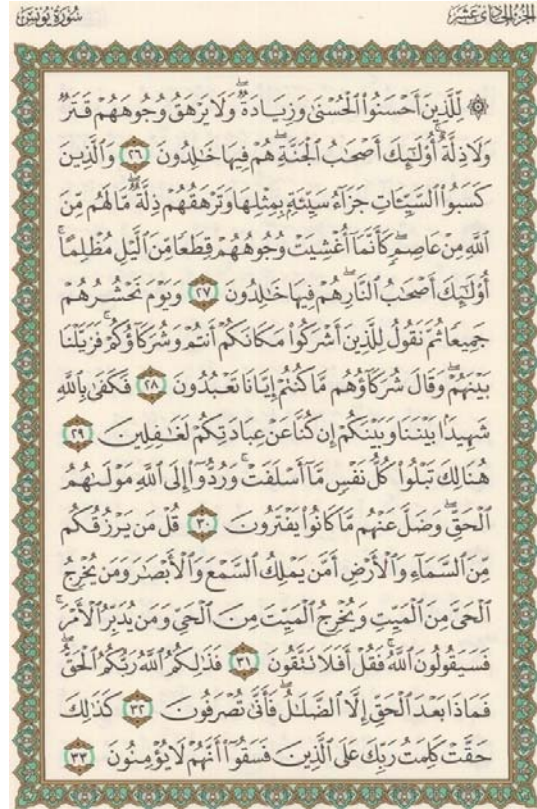 الجزء الحادي عشر
سُورَةُ يُونُسَ
۞ لِّلَّذِينَ أَحْسَنُوا۟ ٱلْحُسْنَىٰ وَزِيَادَةٌۖ وَلَا يَرْهَقُ وُجُوهَهُمْ قَتَرٌ
وَلَا ذِلَّةٌۚ أُو۟لَٰٓئِكَ أَصْحَٰبُ ٱلْجَنَّةِۖ هُمْ فِيهَا خَٰلِدُونَ ٢٦ وَٱلَّذِينَ
كَسَبُوا۟ ٱلسَّيِّـَٔاتِ جَزَآءُ سَيِّئَةٍۭ بِمِثْلِهَا وَتَرْهَقُهُمْ ذِلَّةٌۖ مَّا لَهُم مِّنَ
ٱللَّهِ مِنْ عَاصِمٍۖ كَأَنَّمَآ أُغْشِيَتْ وُجُوهُهُمْ قِطَعًا مِّنَ ٱلَّيْلِ مُظْلِمًاۚ
أُو۟لَٰٓئِكَ أَصْحَٰبُ ٱلنَّارِۖ هُمْ فِيهَا خَٰلِدُونَ ٢٧ وَيَوْمَ نَحْشُرُهُمْ
جَمِيعًا ثُمَّ نَقُولُ لِلَّذِينَ أَشْرَكُوا۟ مَكَانَكُمْ أَنتُمْ وَشُرَكَآؤُكُمْۚ فَزَيَّلْنَا
بَيْنَهُمْۖ وَقَالَ شُرَكَآؤُهُم مَّا كُنتُمْ إِيَّانَا تَعْبُدُونَ ٢٨ فَكَفَىٰ بِٱللَّهِ
شَهِيدًۢا بَيْنَنَا وَبَيْنَكُمْ إِن كُنَّا عَنْ عِبَادَتِكُمْ لَغَٰفِلِينَ ٢٩
هُنَالِكَ تَبْلُوا۟ كُلُّ نَفْسٍ مَّآ أَسْلَفَتْۚ وَرُدُّوٓا۟ إِلَى ٱللَّهِ مَوْلَىٰهُمُ
ٱلْحَقِّۖ وَضَلَّ عَنْهُم مَّا كَانُوا۟ يَفْتَرُونَ ٣٠ قُلْ مَن يَرْزُقُكُم
مِّنَ ٱلسَّمَآءِ وَٱلْأَرْضِ أَمَّن يَمْلِكُ ٱلسَّمْعَ وَٱلْأَبْصَٰرَ وَمَن يُخْرِجُ
ٱلْحَىَّ مِنَ ٱلْمَيِّتِ وَيُخْرِجُ ٱلْمَيِّتَ مِنَ ٱلْحَىِّ وَمَن يُدَبِّرُ ٱلْأَمْرَۚ
فَسَيَقُولُونَ ٱللَّهُۚ فَقُلْ أَفَلَا تَتَّقُونَ ٣١ فَذَٰلِكُمُ ٱللَّهُ رَبُّكُمُ ٱلْحَقُّۖ
فَمَاذَا بَعْدَ ٱلْحَقِّ إِلَّا ٱلضَّلَٰلُۖ فَأَنَّىٰ تُصْرَفُونَ ٣٢ كَذَٰلِكَ
حَقَّتْ كَلِمَتُ رَبِّكَ عَلَى ٱلَّذِينَ فَسَقُوٓا۟ أَنَّهُمْ لَا يُؤْمِنُونَ ٣٣